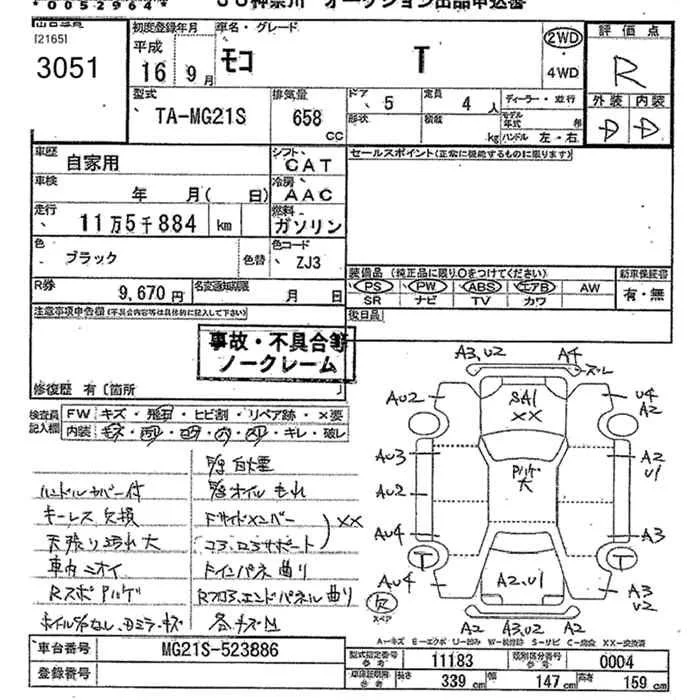 * 0 0 5 2 9 6 4 *
JU神奈川 オークション出品申込書
[2165]
3051
初度登録年月
平成
16 年 9 月
車名・グレード
モコ T
2WD
4WD
評価点
R
外装 内装
D D
型式
TA-MG21S
排気量
658 CC
ドア 5
定員 4 人
形状
積載 kg
ディーラー・並行
モデル年式
ハンドル 左・右
車歴 自家用
シフト CAT
セールスポイント(正常に機能するものに限ります)
車検 年 月( 日)
冷房 AAC
走行 11万5千884 km
燃料 ガソリン
色 ブラック 色替
色コード ZJ3
装備品 (純正品に限り○をつけてください)
新車保証書
PS PW ABS エアB AW
有・無
SR ナビ TV カワ
R券 9,670 円
名変通知期限 月 日
後日品
注意事項申告欄(不具合内容等は具体的に記入して下さい)
事故・不具合等
ノークレーム
修復歴 有〔箇所 〕
検査員記入欄
FW キズ・飛石・ヒビ割・リペア跡・×要
内装 キレ・破レ
ハンドルカバー付
キーレス欠損
天張り汚れ大
車内ニオイ
E/g 白煙
E/g オイルもれ
Fサイドメンバー
コアロアサポート
XX
Fインパネ曲り
A3,U2 A4
AU2 SA1 XX U4 A2
AU3 A2 U1
AU2
AU4 A3
T T
AU4 A2,U1 A3 U2
欠
スペア
A2 A3,U2 A2
A-キズ E-エクボ U-凹み W-板修跡 S-サビ C-腐食 XX-交換済
車台番号 MG21S-523886
登録番号
型式指定番号 参考 11183
類別区分番号 参考 0004
車体証明用 参考 長さ 339 cm 幅 147 cm 高さ 159 cm